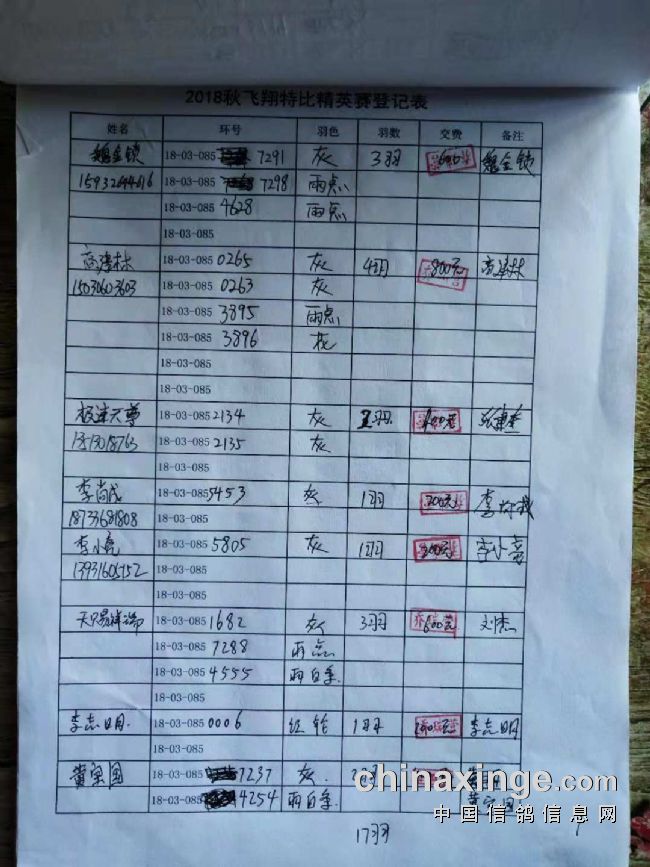 2018秋飞翔特比精英赛登记表
姓名 环号 羽色 羽数 交费 备注
魏金锁 18-03-085 7291 灰 3羽 600 魏金锁
18-03-085 7298 雨点
18-03-085 4628 雨点
18-03-085
18-03-085 0265 灰 4羽 800元
15030603603 18-03-085 0263 灰
18-03-085 3895 雨点
18-03-085 3896 花
18-03-085
18-03-085
极速天尊 18-03-085 2134 灰 2羽 400元
18-03-085 2135 灰
18-03-085
李尚成 18-03-085 5453 灰 1羽 200元 李尚成
18733681808 18-03-085
李小亮 18-03-085 5805 灰 1羽 200元 李小亮
13931605152 18-03-085
18-03-085
18-03-085 1682 灰 3羽 600元 刘杰
18-03-085 7288 雨点
18-03-085 4555 雨白条
18-03-085
李志明 18-03-085 0006 红轮 1羽 200元 李志明
18-03-085
黄宝国 18-03-085 7237 灰
18-03-085 4254 雨白条 黄宝国
chinaxinge.com
中国信鸽信息网
17羽 1